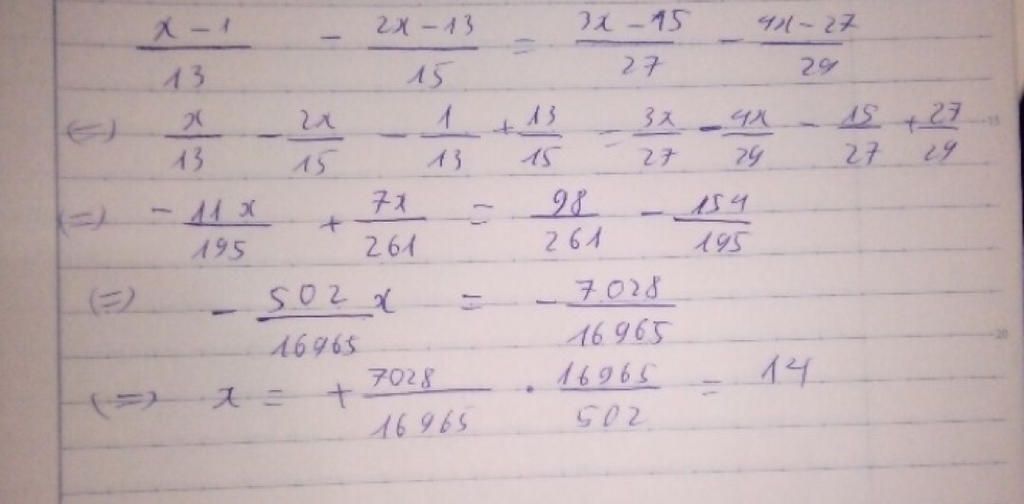 (x - 1)/13 - (2x - 13)/15 = (3x - 15)/27 - (4x - 27)/29
(=) x/13 - 2x/15 - 1/13 + 13/15 = 3x/27 - 4x/29 - 15/27 + 27/29
(=) - 11x/195 + 7x/261 = 98/261 - 154/195
(=) - 502/16965 x = - 7028/16965
(=) x = + 7028/16965 . 16965/502 = 14